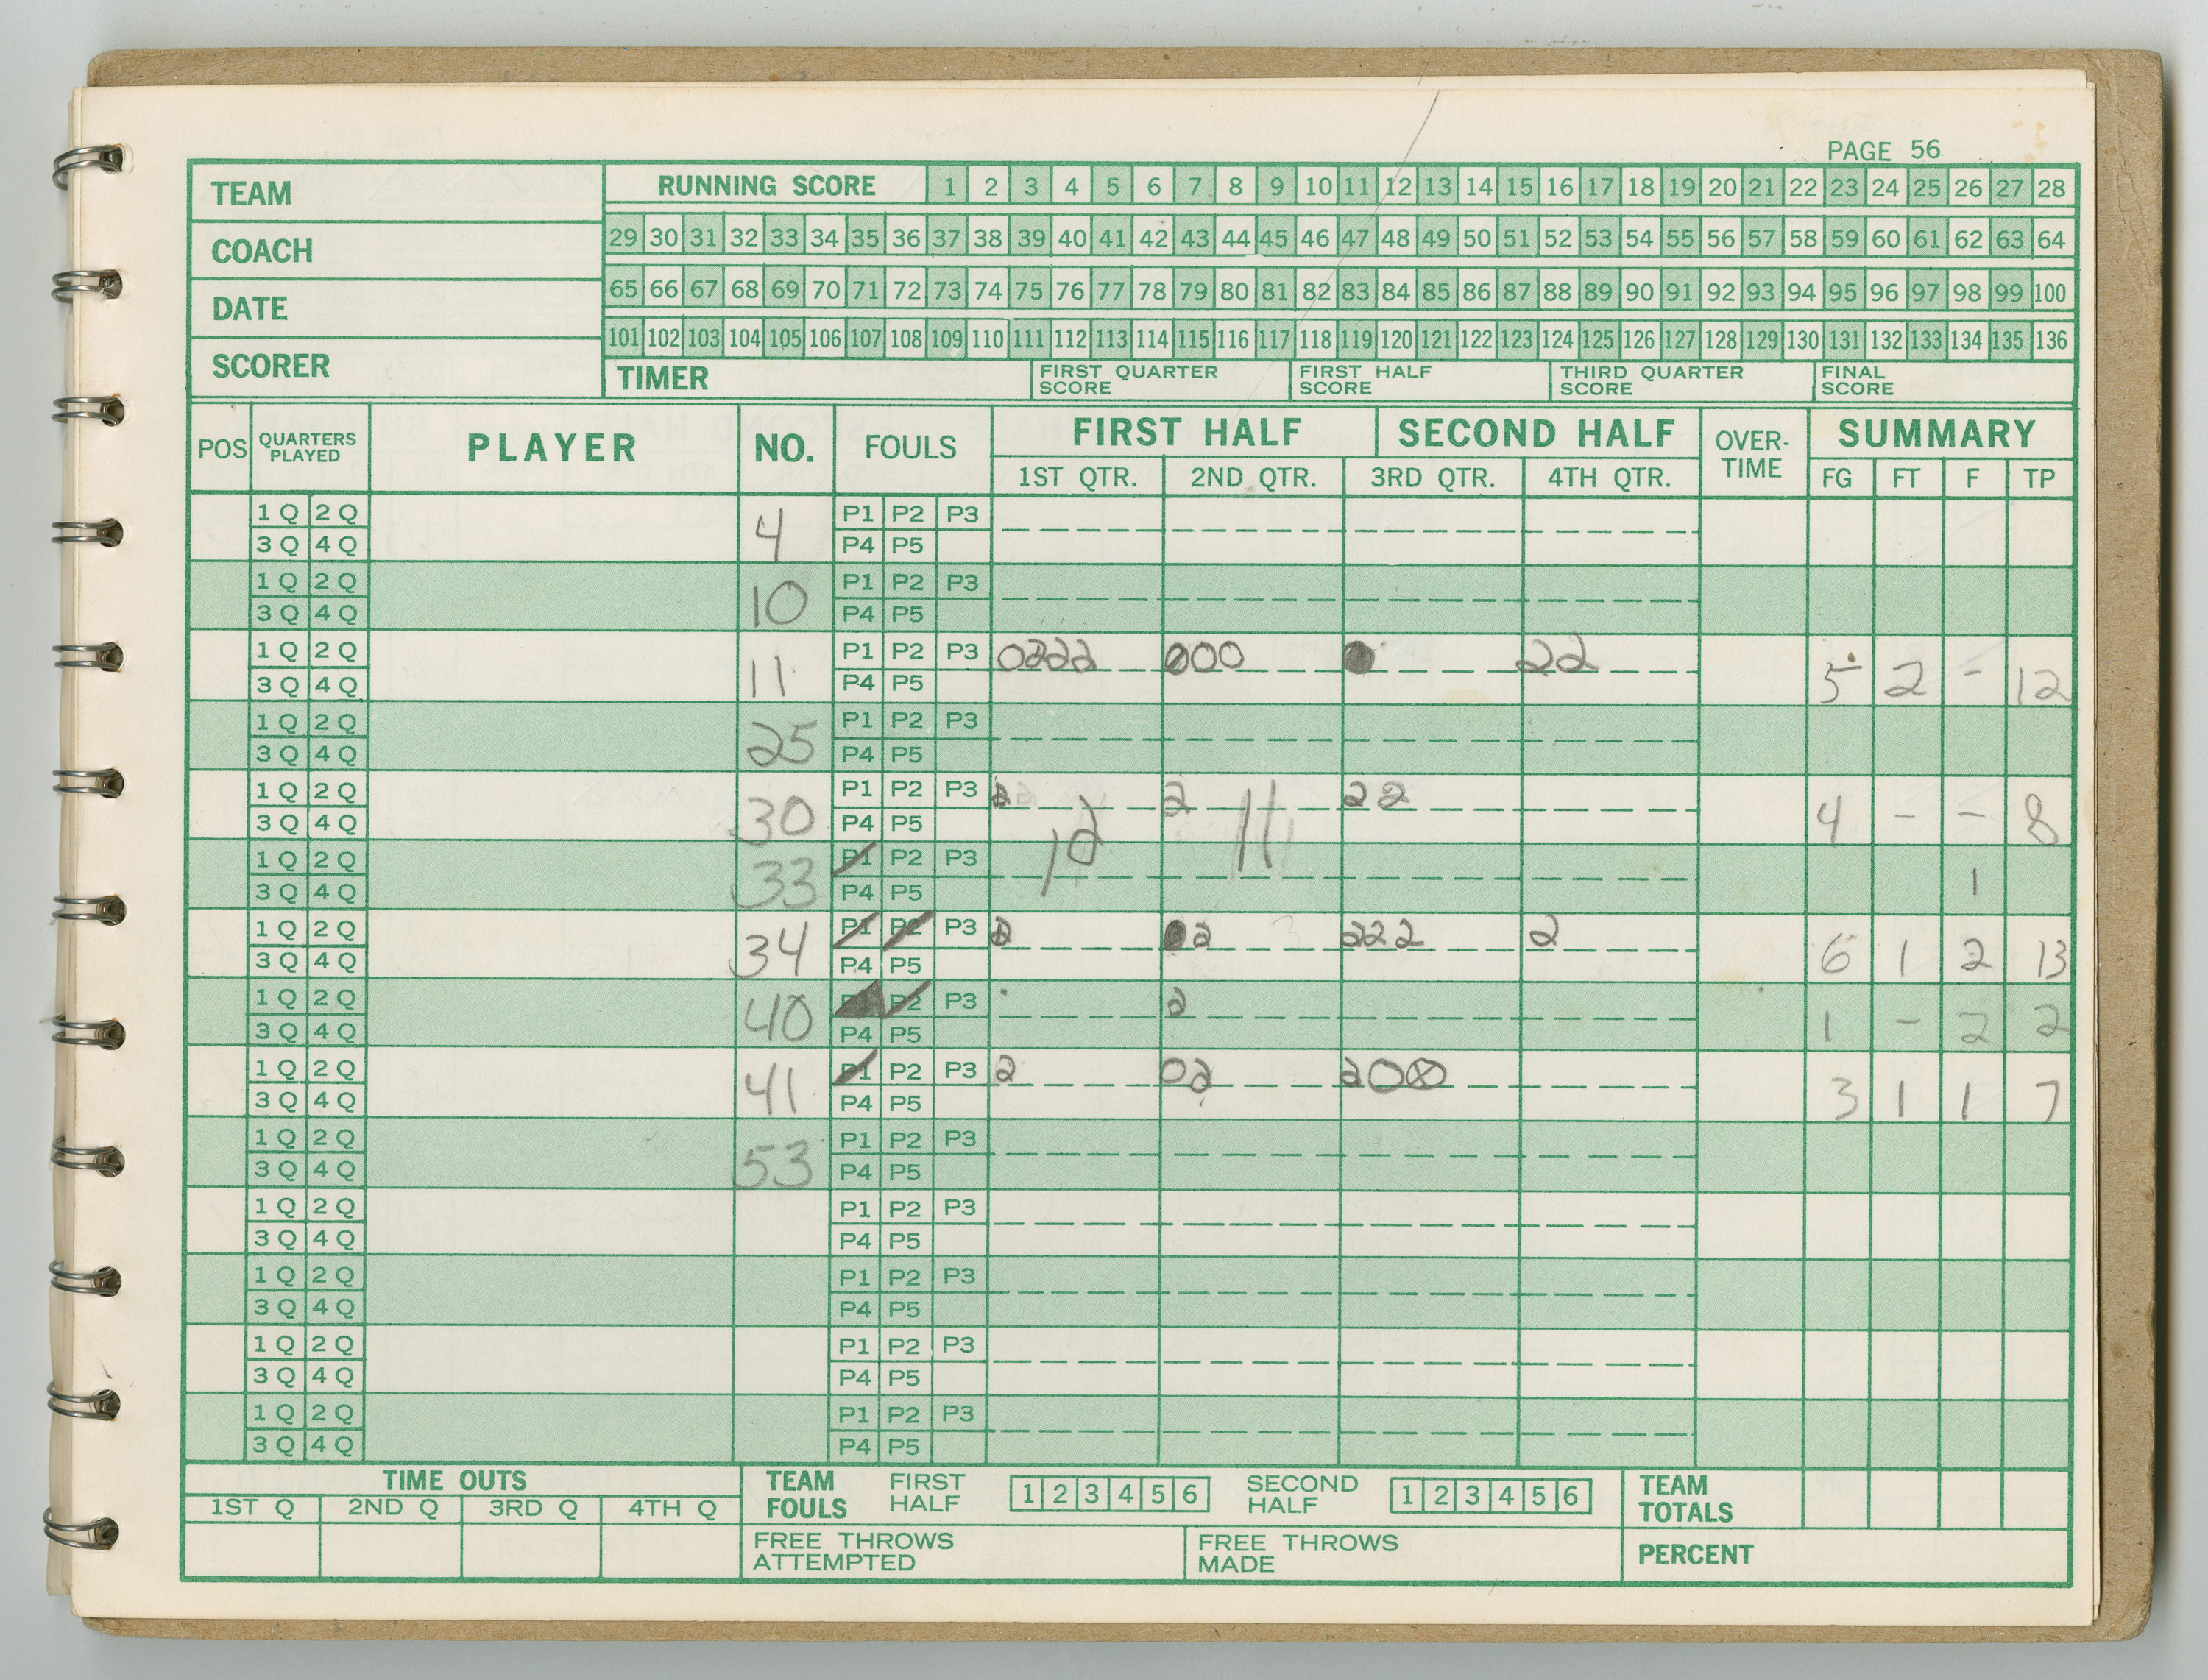 PAGE 56
TEAM
COACH
DATE
SCORER
RUNNING SCORE 1 2 3 4 5 6 7 8 9 10 11 12 13 14 15 16 17 18 19 20 21 22 23 24 25 26 27 28
29 30 31 32 33 34 35 36 37 38 39 40 41 42 43 44 45 46 47 48 49 50 51 52 53 54 55 56 57 58 59 60 61 62 63 64
65 66 67 68 69 70 71 72 73 74 75 76 77 78 79 80 81 82 83 84 85 86 87 88 89 90 91 92 93 94 95 96 97 98 99 100
101 102 103 104 105 106 107 108 109 110 111 112 113 114 115 116 117 118 119 120 121 122 123 124 125 126 127 128 129 130 131 132 133 134 135 136
TIMER FIRST QUARTER SCORE FIRST HALF SCORE THIRD QUARTER SCORE FINAL SCORE
POS QUARTERS PLAYED PLAYER NO. FOULS FIRST HALF SECOND HALF OVER-TIME SUMMARY
1ST QTR. 2ND QTR. 3RD QTR. 4TH QTR. FG FT F TP
1 Q 2 Q 4 P1 P2 P3
3 Q 4 Q P4 P5
1 Q 2 Q 10 P1 P2 P3
3 Q 4 Q P4 P5
1 Q 2 Q 11 P1 P2 P3 0222 000 22 5 2 - 12
3 Q 4 Q P4 P5
1 Q 2 Q 25 P1 P2 P3
3 Q 4 Q P4 P5
1 Q 2 Q 30 P1 P2 P3 2 22 4 - - 8
3 Q 4 Q P4 P5 12 11
1 Q 2 Q 33 P1 P2 P3 1
3 Q 4 Q P4 P5
1 Q 2 Q 34 P1 P2 P3 2 2 222 2 6 1 2 13
3 Q 4 Q P4 P5
1 Q 2 Q 40 P2 P3 2 1 - 2 2
3 Q 4 Q P4 P5
1 Q 2 Q 41 P1 P2 P3 2 02 20⊗ 3 1 1 7
3 Q 4 Q P4 P5
1 Q 2 Q 53 P1 P2 P3
3 Q 4 Q P4 P5
1 Q 2 Q P1 P2 P3
3 Q 4 Q P4 P5
1 Q 2 Q P1 P2 P3
3 Q 4 Q P4 P5
1 Q 2 Q P1 P2 P3
3 Q 4 Q P4 P5
1 Q 2 Q P1 P2 P3
3 Q 4 Q P4 P5
TIME OUTS
1ST Q 2ND Q 3RD Q 4TH Q
TEAM FOULS FIRST HALF 1 2 3 4 5 6 SECOND HALF 1 2 3 4 5 6
TEAM TOTALS
FREE THROWS ATTEMPTED
FREE THROWS MADE
PERCENT